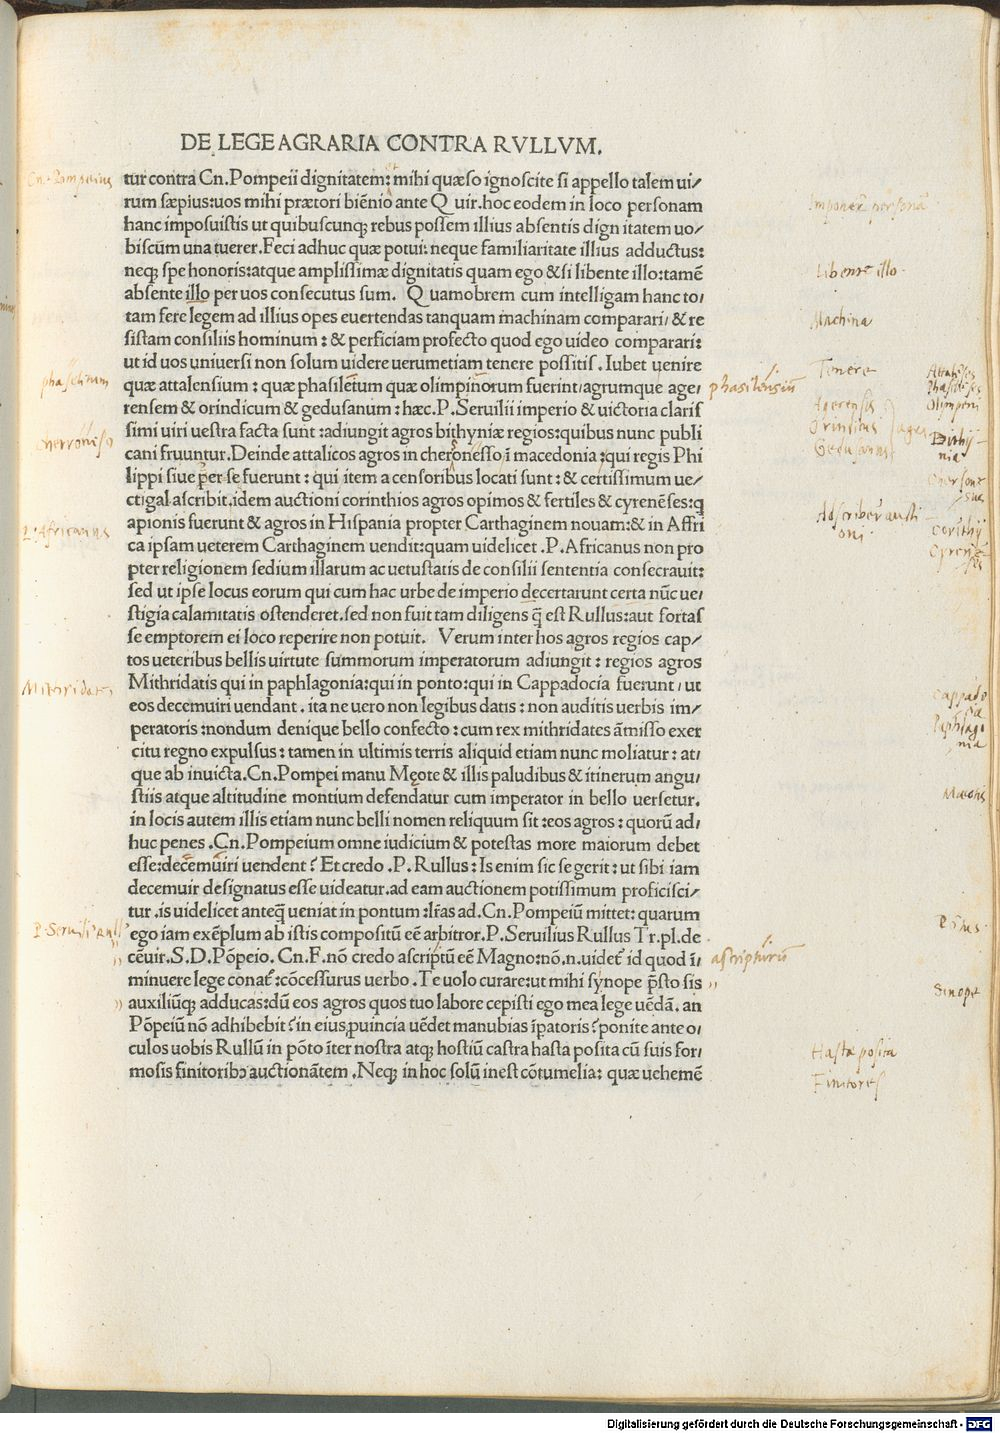 DE LEGE AGRARIA CONTRA RVLLVM.
Cn. Pompeius
tur contra Cn. Pompeii dignitatem: mihi quæso ignoscite si appello talem ui/
rum sæpius: uos mihi prætori biēnio ante Q uir. hoc eodem in loco personam
hanc imposuistis ut quibuscunq; rebus possem illius absentis dign itatem uo/
biscūm una tuerer. Feci adhuc quæ potui: neque familiaritate illius adductus:
neq; spe honoris: atque amplissimæ dignitatis quam ego & si libente illo: tamē
absente illo per uos consecutus sum. Q uamobrem cum intelligam hanc to/
tam fere legem ad illius opes euertendas tanquam machinam comparari/ & re
sistam consiliis hominum: & perficiam profecto quod ego uideo comparari:
ut id uos uniuersi non solum uidere uerumetiam tenere possitis. Iubet uenire
quæ attalensium: quæ phasiletum quæ olimpinorum fuerint/ agrumque age/
rensem & orindicum & gedusanum: hæc. P. Seruilii imperio & uictoria claris
simi uiri uestra facta sunt: adiungit agros bithyniæ regios: quibus nunc publi
cani fruuntur. Deinde attalicos agros in cheronesso ī macedonia: qui regis Phi
lippi siue per se fuerunt: qui item a censoribus locati sunt: & certissimum ue/
ctigal ascribit. idem auctioni corinthios agros opimos & fertiles & cyrenēses: q
apionis fuerunt & agros in Hispania propter Carthaginem nouam: & in Affri
ca ipsam ueterem Carthaginem uendit: quam uidelicet. P. Africanus non pro
pter religionem sedium illarum ac uetustatis de consilii sententia consecrauit:
sed ut ipse locus eorum qui cum hac urbe de imperio decertarunt certa nūc ue/
stigia calamitatis ostenderet. sed non fuit tam diligens q̄ est Rullus: aut fortas
se emptorem ei loco reperire non potuit. Verum inter hos agros regios cap/
tos ueteribus bellis uirtute summorum imperatorum adiungit: regios agros
Mithridatis qui in paphlagonia: qui in ponto: qui in Cappadocia fuerunt/ ut
eos decemuiri uendant. ita ne uero non legibus datis: non auditis uerbis im/
peratoris: nondum denique bello confecto: cum rex mithridates āmisso exer
citu regno expulsus: tamen in ultimis terris aliquid etiam nunc moliatur: at/
que ab inuicta. Cn. Pompei manu Męote & illis paludibus & itinerum angu/
stiis atque altitudine montium defendatur cum imperator in bello uersetur.
in locis autem illis etiam nunc belli nomen reliquum sit: eos agros: quorū ad/
huc penes. Cn. Pompeium omne iudicium & potestas more maiorum debet
esse: decemuiri uendent? Et credo. P. Rullus: Is enim sic se gerit: ut sibi iam
decemuir designatus esse uideatur. ad eam auctionem potissimum proficisci/
tur. is uidelicet anteq̄ ueniat in pontum: lr̄as ad. Cn. Pompeiū mittet: quarum
ego iam exēplum ab istis compositū eē arbitror. P. Seruilius Rullus Tr. pl. de
cēuir. S. D. Pōpeio. Cn. F. nō credo ascriptū eē Magno: nō. n. uidet᷑ id quod ī/
minuere lege conat᷑: cōcessurus uerbo. Te uolo curare: ut mihi synope p̄sto sis
auxiliūq; adducas: dū eos agros quos tuo labore cepisti ego mea lege uēdā. an
Pōpeiū nō adhibebit? in eius ꝓuincia uēdet manubias īpatoris? ponite ante o/
culos uobis Rullū in pōto īter nostra atq; hostiū castra hasta posita cū suis for/
mosis finitoribɔ auctionātem. Neq; in hoc solū inest cōtumelia: quæ uehemē
phaselinum
cherroneso
P. Africanus
Mithridates
phasilensiū
ascripturū
Libente illo.
Machina
Tenere
Agerensis
Gedusanus
Attalēses
Olimpeni
Bithy-
nia
Adscribere aucti
oni.
Corithij
Cappado
cia
Paphlago
nia
Mæotis
Pōtus
Sinope
Hasta posita
Finitores
Digitalisierung gefördert durch die Deutsche Forschungsgemeinschaft - DFG